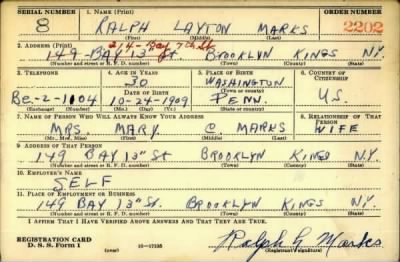 SERIAL NUMBER 1. NAME (Print) ORDER NUMBER
8 RALPH LAYTON MARKS 2202
(First) (Middle) (Last)
2. ADDRESS (Print) 214-Bay 7th St.
149 BAY 13th St. BROOKLYN KINGS N.Y.
(Number and street or R. F. D. number) (Town) (County) (State)
3. TELEPHONE 4. AGE IN YEARS 5. PLACE OF BIRTH 6. COUNTRY OF CITIZENSHIP
30 WASHINGTON
(Town or county)
Be.-2-1104 DATE OF BIRTH
10-24-1909 PENN. U.S.
(Exchange) (Number) (Mo.) (Day) (Yr.) (State or country)
7. NAME OF PERSON WHO WILL ALWAYS KNOW YOUR ADDRESS 8. RELATIONSHIP OF THAT PERSON
MRS. MARY C. MARKS WIFE
(Mr., Mrs., Miss) (First) (Middle) (Last)
9. ADDRESS OF THAT PERSON
149 BAY 13th St BROOKLYN KINGS N.Y.
(Number and street or R. F. D. number) (Town) (County) (State)
10. EMPLOYER'S NAME
SELF
11. PLACE OF EMPLOYMENT OR BUSINESS
149 BAY 13th St. BROOKLYN KINGS N.Y.
(Number and street or R. F. D. number) (Town) (County) (State)
I AFFIRM THAT I HAVE VERIFIED ABOVE ANSWERS AND THAT THEY ARE TRUE.
REGISTRATION CARD
D. S. S. Form 1 16-17105 Ralph L Marks
(Registrant's signature)